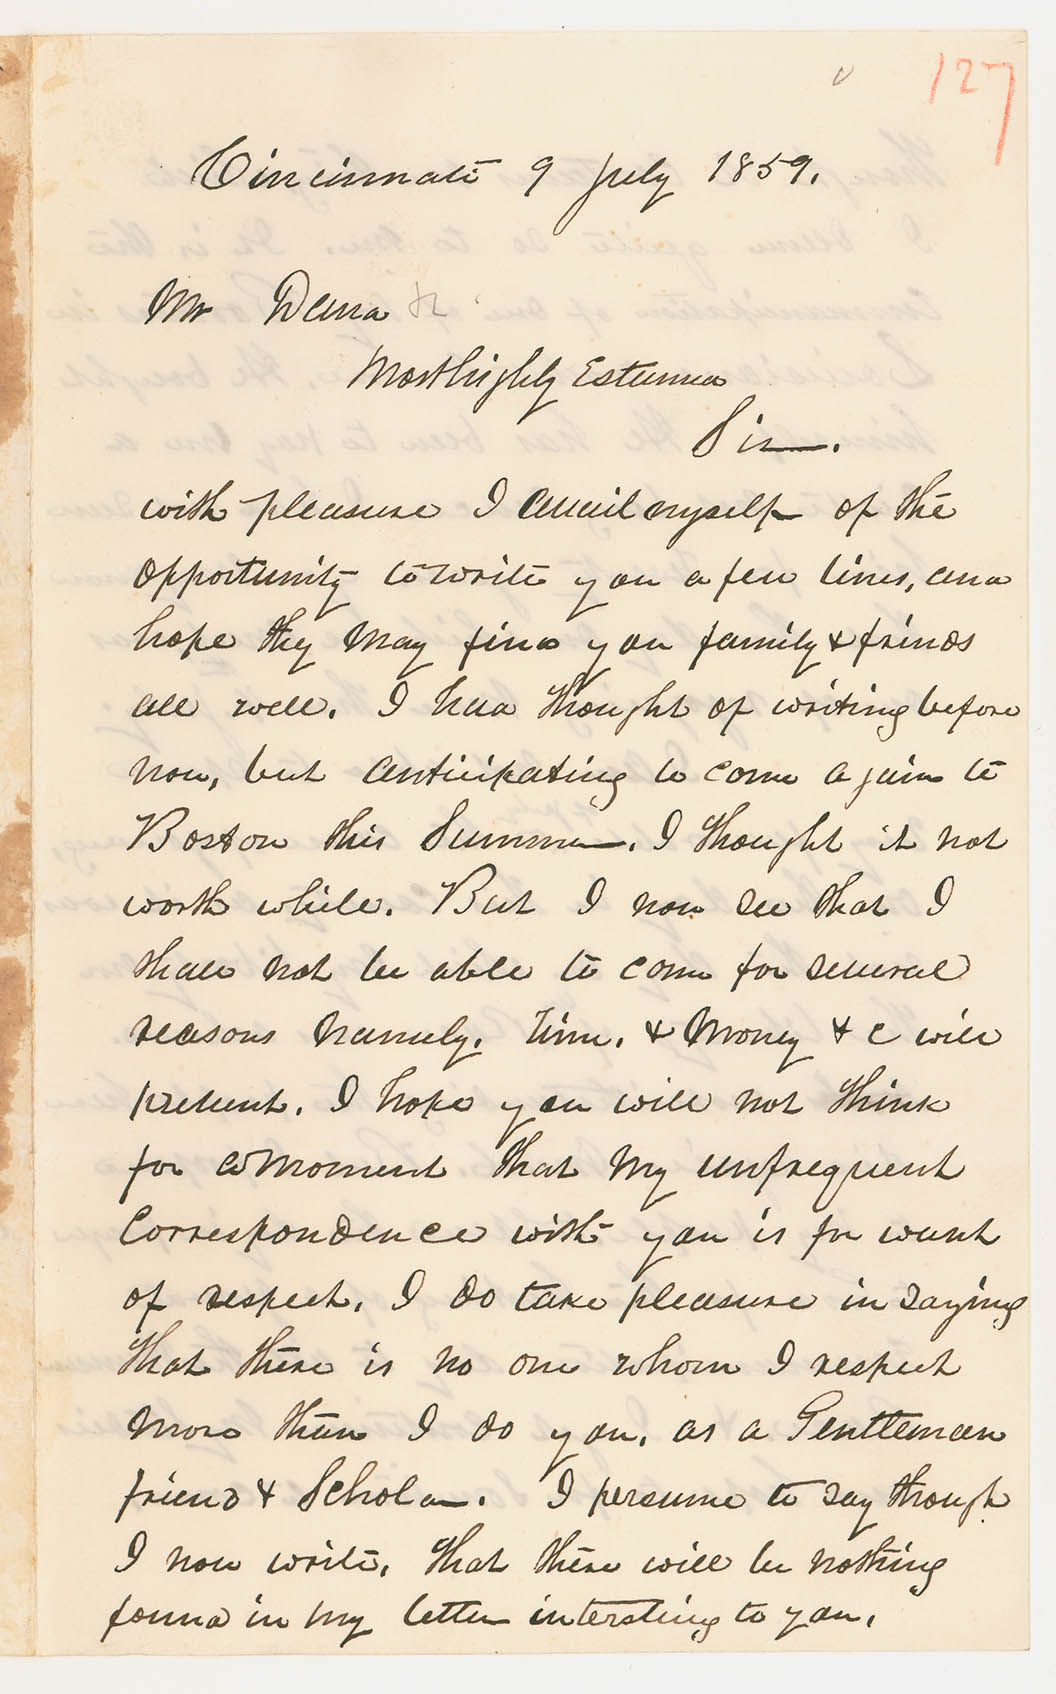 127
Cincinnati 9 July 1859.
Mr Dana
Most highly Esteemed
Sir.
with pleasure I avail myself of the
opportunity to write you a few lines, and
hope they may find you family & frinds
all well. I had thought of writing before
now, but anticipating to come again to
Boston this Summer, I thought it not
worth while. But I now see that I
shall not be able to come for several
reasons namely. Time, & Money & c will
prevent. I hope you will not think
for a moment that my unfrequent
Correspondence with you is for want
of respect, I do take pleasure in saying
that there is no one whom I respect
more than I do you, as a Gentleman
friend & Scholar. I persume to say though
I now write, that there will be nothing
found in my letter intersting to you,